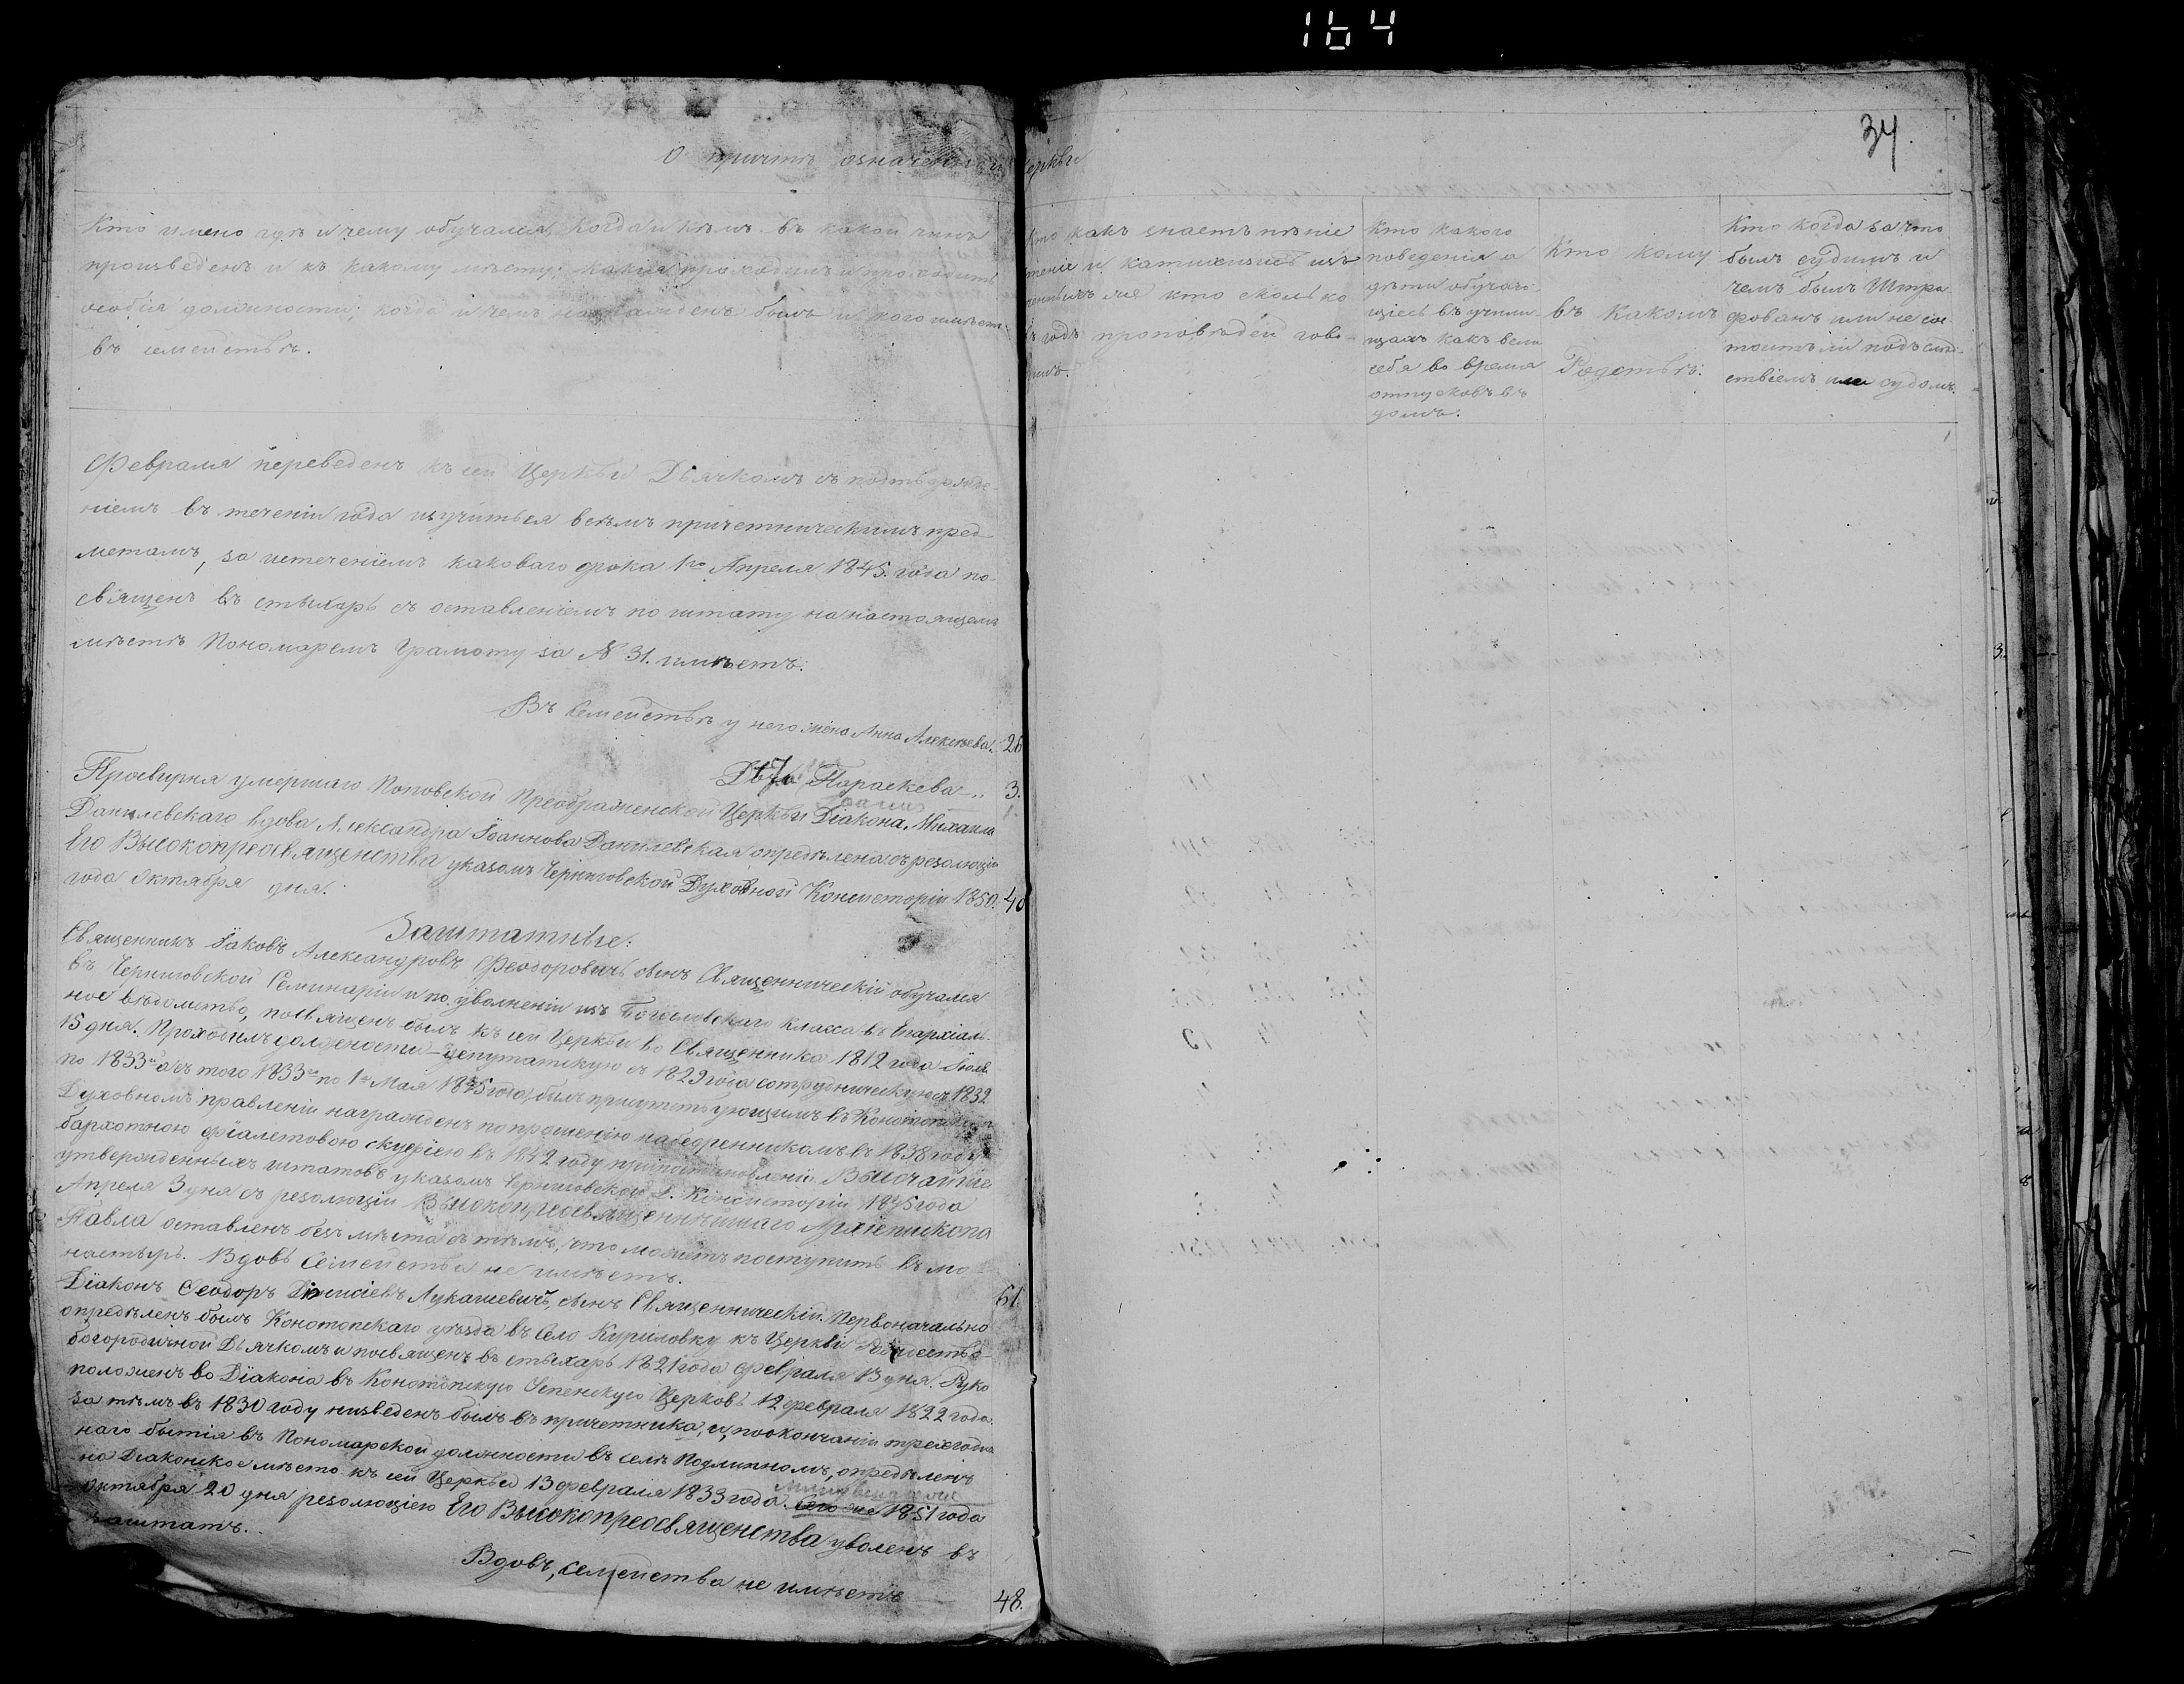 164
34.
О причтѣ означенной Церкви
Кто имено гдѣ и чему обучался, Когда и кѣмъ въ какой чинъ
произведенъ и къ какому мѣсту; какія проходилъ и проходитъ
особія должности; когда и чемъ награжденъ былъ и кого имѣетъ
въ семействѣ.
Кто какъ знаетъ пѣніе
чтеніе и катихизисъ
же кто сколько
въ годъ проповѣдей гово-
рилъ.
Кто какого
поведенія а
дѣти обучаю-
щіесь въ учили-
щахъ какъ вели
себя во время
отпусковъ въ
домъ.
Кто кому
въ какомъ
Родствѣ:
Кто когда за что
былъ судимъ и
чемъ былъ Штра-
фованъ или не сос-
тоитъ ли подъ слѣд-
ствіемъ или судомъ.
Февраля переведенъ къ сей Церкви Дьячкомъ съ подтвержде-
ніемъ въ теченіи года изучиться всѣмъ причетническимъ пред-
метамъ, за истеченіемъ каковаго срока 1го Апреля 1845. года по-
священъ въ стыхарь съ оставленіемъ по штату на настоящемъ
мѣстѣ Пономаремъ Грамоту за № 31. имѣетъ.
Въ Семействѣ у него жена Анна Алексѣева. 26
Параскева 3.
Просвирня умершаго Поповской Преображенской Церкви Діакона Михаила
Данилевскаго вдова Александра Іоаннова Данилевская опредѣлена съ резолюціи
Его Высокопреосвященства указомъ Черниговской Духовной Консисторіи 1850. 40
года Октября дня.
Заштатные:
Священникъ Іаковъ Александровъ Феодоровичъ сынъ Священническій обучался
въ Черниговской Семинаріи и по уволненіи изъ Богословскаго класса въ Епархіаль-
ное вѣдомство, посвященъ былъ къ сей Церкви во Священника 1812 года Іюля
15 дня. Проходилъ должности - депутатскую съ 1829 года сотрудническую съ 1832
по 1833й а съ того 1833го по 1е Мая 1845 года, былъ присутствующимъ въ Конотопскомъ
Духовномъ правленіи награжденъ по прошенію набедренникомъ въ 1838 году
бархотною фіалетовою скуфіею въ 1842 году при постановленіи Высочайше
утвержденныхъ штатовъ указомъ Черниговской Д. Консисторіи 1845 года
Апреля 3 дня съ резолюціи Высокопреосвященнѣйшаго Архіепископа
Павла оставленъ безъ мѣста съ тѣмъ, что можетъ поступить въ мо-
настырь. Вдовъ Семейства не имѣетъ. 61.
Діаконъ Феодоръ Діонисіевъ Лукашевичъ, сынъ Священническій. Первоначально
опредѣленъ былъ Конотопскаго уѣзда въ Село Куриловку къ Церкви Рождество-
богородичной Дьячкомъ и посвященъ въ стыхарь 1821 года февраля 13 дня. Руко
положенъ во Діакона въ Конотопскую Успенскую Церковь 12 февраля 1822 года.
за тѣмъ въ 1830 году низведенъ былъ въ причетника, и, по окончаніи трехгодич
наго бытія въ Пономарской должности въ селѣ Подлипномъ, опредѣленъ
на Діаконское мѣсто къ сей Церкви 13 февраля 1833 года. Сего же 1851 года
Октября 20 дня резолюціею Его Высокопреосвященства уволенъ въ
заштатъ.
Вдовъ, семейства не имѣетъ 48.